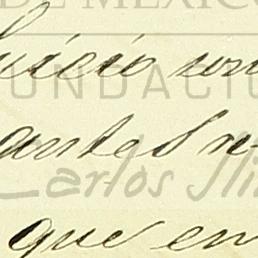 DE MEXICO
juicio
FUNDACIÓ
antes
Carlos Sli
que en